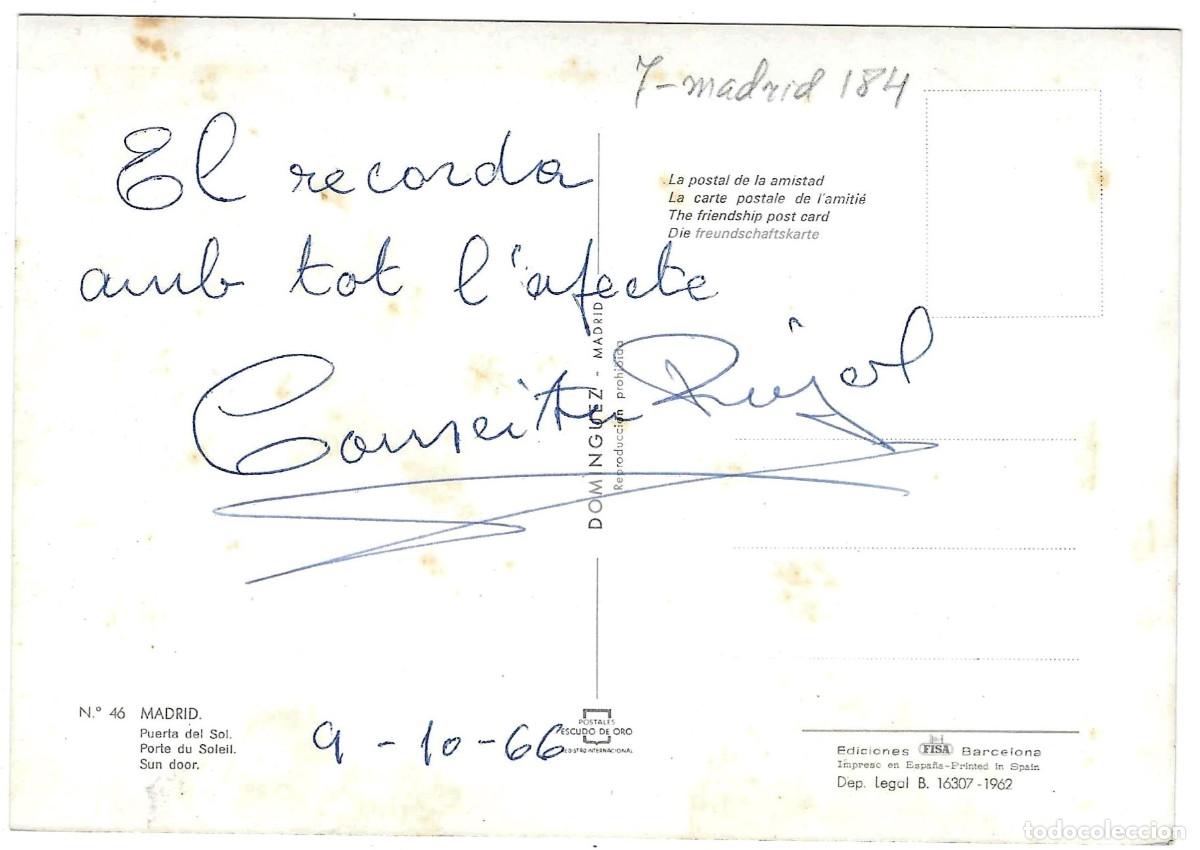 7-madrid 184
El recorda
amb tot l'afecte
9-10-66
La postal de la amistad
La carte postale de l'amitié
The friendship post card
Die freundschaftskarte
DOMINGUEZ - MADRID
Reproducción prohibida
N.º 46 MADRID.
Puerta del Sol.
Porte du Soleil.
Sun door.
POSTALES
ESCUDO DE ORO
REGISTRO INTERNACIONAL
Ediciones FISA Barcelona
Impreso en España-Printed in Spain
Dep. Legal B. 16307-1962
todocoleccion